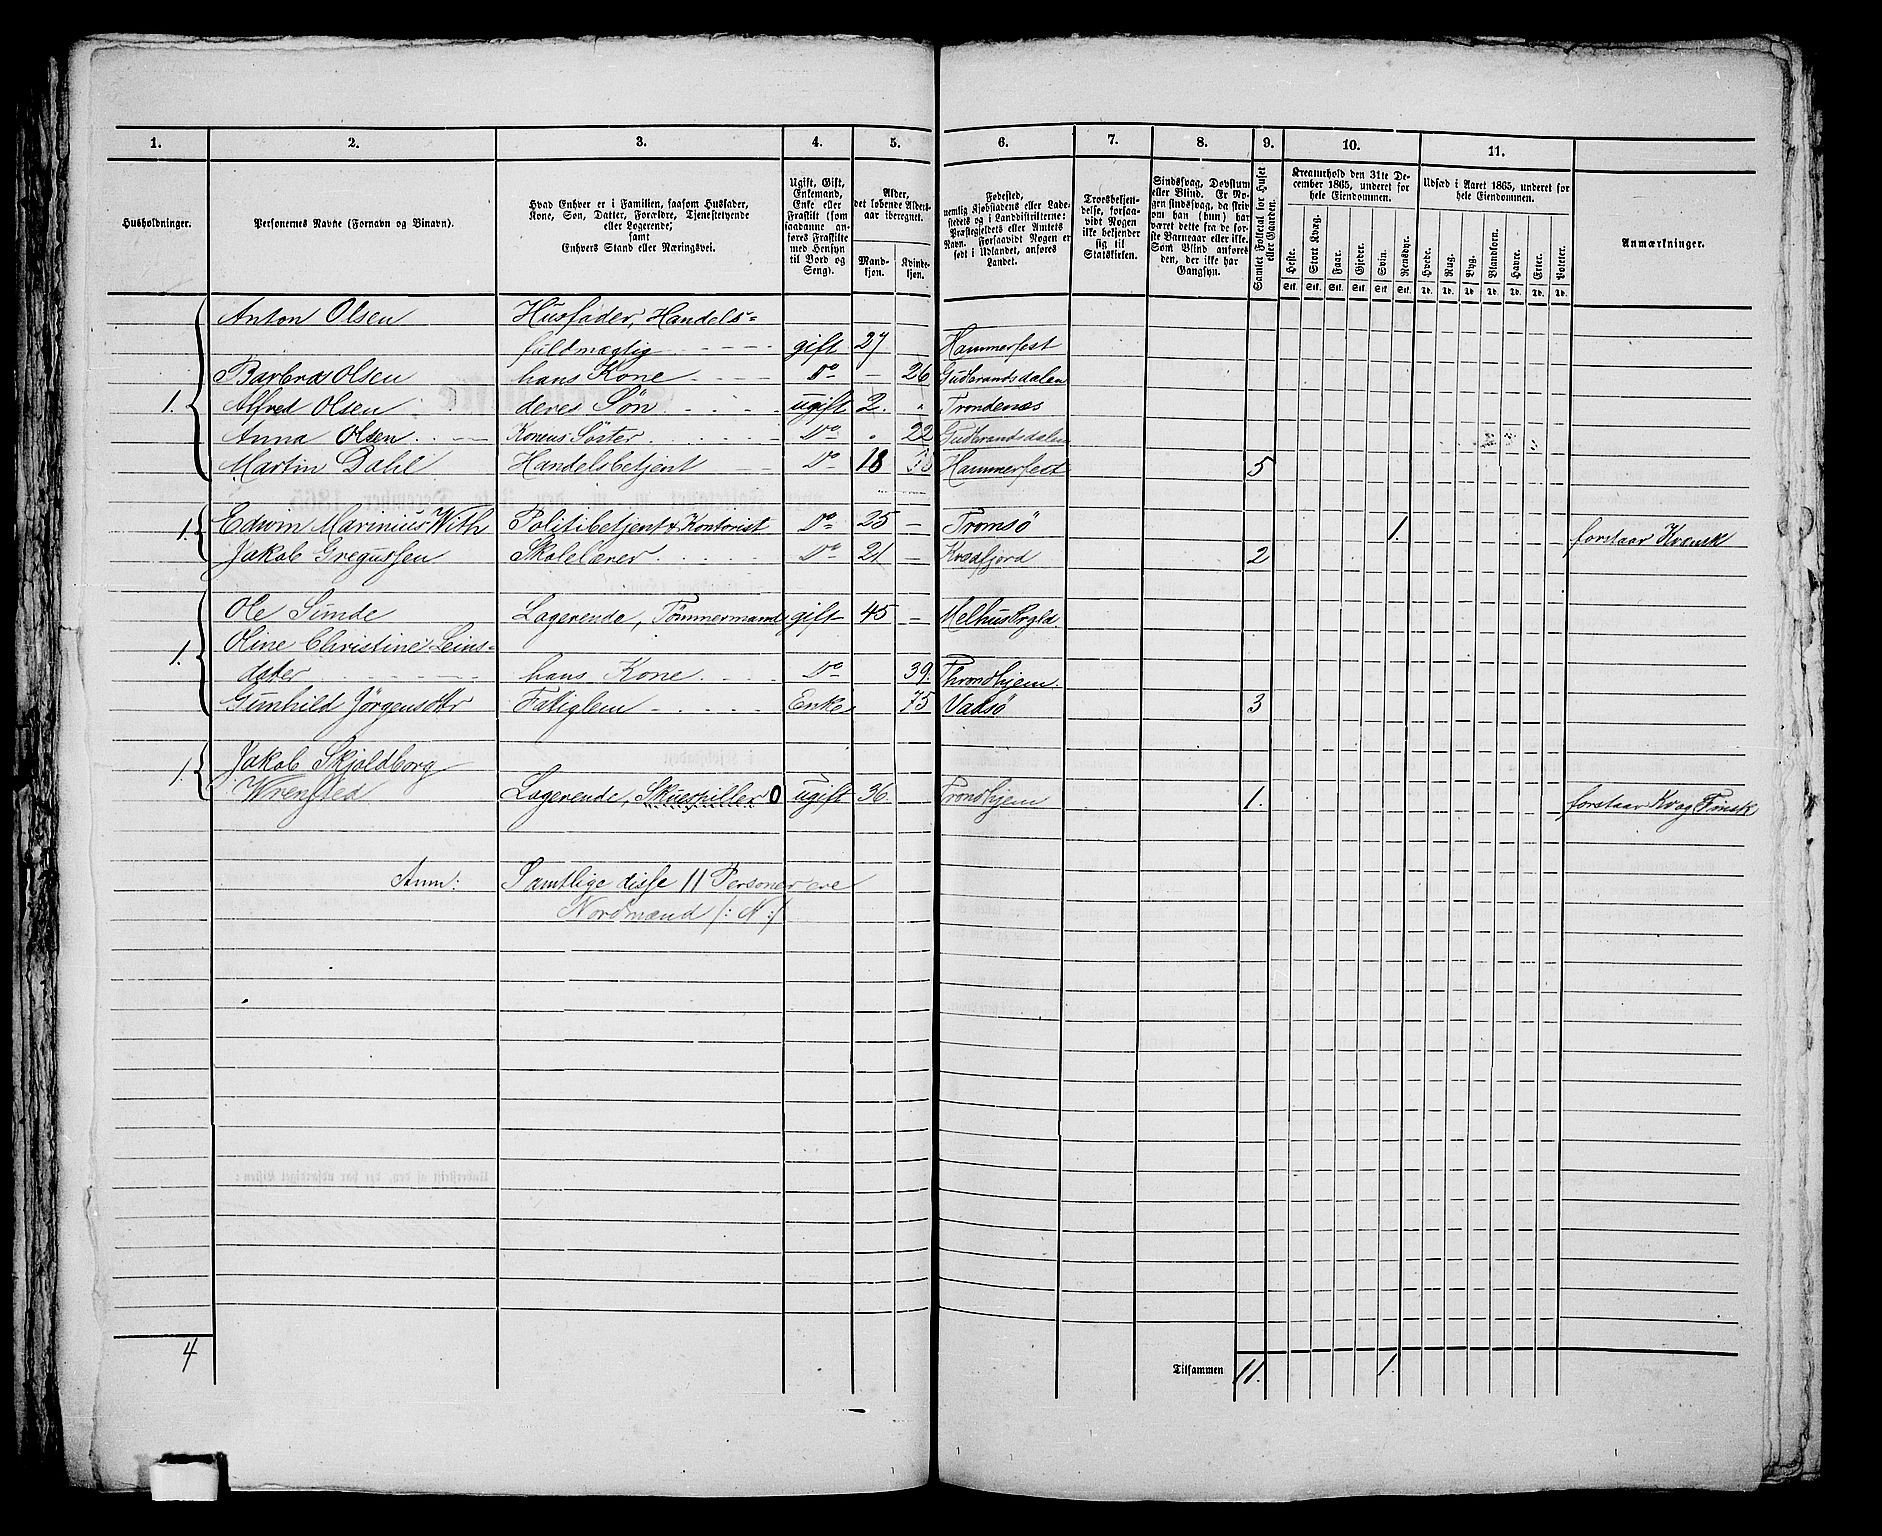 1. 2. 3. 4. 5. 6. 7. 8. 9. 10. 11.
Husholdninger.
Personernes Navne (Fornavn og Binavn).
Hvad Enhver er i Familien, saasom Husfader,
Kone, Søn, Datter, Forældre, Tjenestetyende
eller Logerende,
samt
Enhvers Stand eller Næringsvei.
Ugift, Gift,
Enkemand,
Enke eller
Fraskilt (som
saadanne an-
føres Fraskilte
med Hensyn
til Bord og
Seng).
Alder,
det løbende Alders-
aar iberegnet.
Mand-
kjøn.
Kvinde-
kjøn.
Fødested,
nemlig Kjøbstadens eller Lade-
stedets og i Landdistrikterne:
Præstegjeldets eller Amtets
Navn. Forsaavidt Nogen er
født i Udlandet, anføres
Landet.
Troesbekjen-
delse, forsaa-
vidt Nogen
ikke bekjender
sig til
Statskirken.
Sindssvag, Døvstum
eller Blind. Er No-
gen sindssvag, da skriv
om han (hun) har
været dette fra de før-
ste Barneaar eller ikke.
Som Blind anføres
den, der ikke har
Gangsyn.
Samlet Folketal for Huset
eller Gaarden.
Kreaturhold den 31te De-
cember 1865, underet for
hele Eiendommen.
Heste. Stort Kvæg. Faar. Gjeder. Svin. Rensdyr.
Stk. Stk. Stk. Stk. Stk. Stk.
Udsæd i Aaret 1865, underet for
hele Eiendommen.
Hvede. Rug. Byg. Blandkorn. Havre. Erter. Poteter.
Td. Td. Td. Td. Td. Td. Td.
Anmærkninger.
Anton Olsen Husfader, Handels-
fuldmægtig gift 27 Hammerfest
Barbra Olsen hans Kone Do 26 Gudbrandsdalen
1. Alfred Olsen deres Søn ugift 2. Trondenæs
Anna Olsen Konens Søster Do 22 Gudbrandsdalen
Martin Dahl Handelsbetjent Do 18 Hammerfest 5
1. Edwin Marinius With Politibetjent & Kontorist Do 25 Tromsø 1. forstaar Kvænsk
Jakob Gregussen Skolelærer Do 21 Kvædfjord 2
Ole Sunde Logerende, Tømmermand gift 45 Melhus Prgld.
1. Oline Christine Leins-
dater hans Kone Do 39. Throndhjem.
Gunhild Jørgensdtr Fatiglem Enke 75 Vadsø 3
1. Jakob Skjoldborg
Wrensted Logerende, Skuespiller 0 ugift 36. Trondhjem 1. forstaar Kv og Finsk
Anm: Samtlige disse 11 Personer ere
Nordmænd /: N :/
4
Tilsammen 11. 1.